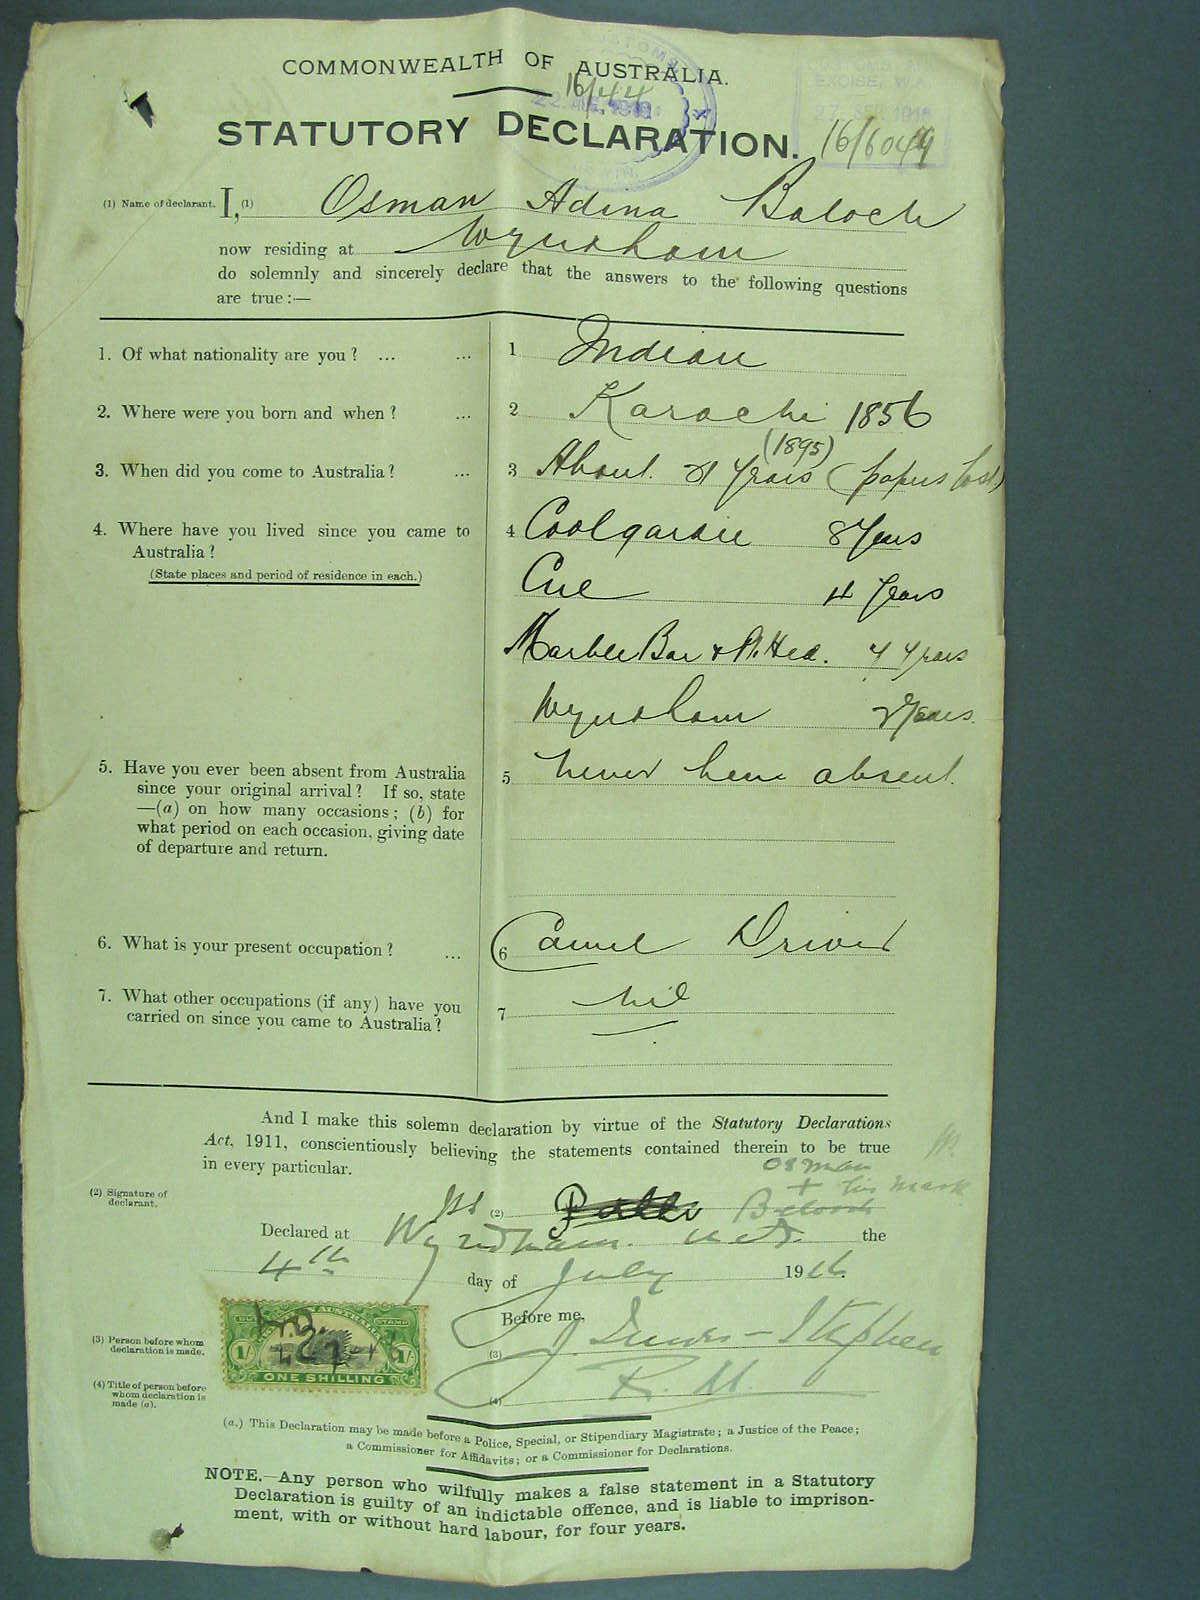 COMMONWEALTH OF AUSTRALIA.
16/44
STATUTORY DECLARATION.
EXCISE, W.A.
22 SEP 1916
16/6049
(1) Name of declarant. I, (1) Osman Adina Baloch
now residing at Wyndham
do solemnly and sincerely declare that the answers to the following questions
are true:—
1. Of what nationality are you? ... ... 1 Indian
2. Where were you born and when? ... 2 Karachi 1856
(1895)
3. When did you come to Australia? ... 3 About 21 years (papers lost)
4. Where have you lived since you came to Australia? 4 Coolgardie 8 Years
(State places and period of residence in each.)
Cue 4 years
Marble Bar & Pt. Hed. 4 years
Wyndham 2 Years.
5. Have you ever been absent from Australia 5 never been absent.
since your original arrival? If so, state
—(a) on how many occasions; (b) for
what period on each occasion, giving date
of departure and return.
6. What is your present occupation? ... 6 Camel Driver
7. What other occupations (if any) have you 7 nil
carried on since you came to Australia?
And I make this solemn declaration by virtue of the Statutory Declarations
Act, 1911, conscientiously believing the statements contained therein to be true
in every particular.
Osman
+ his mark
(2) Signature of declarant. (2) Baloch
Declared at Wyndham. the
4th day of July 1916.
Before me,
(3) Person before whom declaration is made. (3) J. Stephen
(4) Title of person before whom declaration is made (a). (4) R. M.
AUSTRALIA
STAMP
1/- 1/-
ONE SHILLING
(a.) This Declaration may be made before a Police, Special, or Stipendiary Magistrate; a Justice of the Peace;
a Commissioner for Affidavits; or a Commissioner for Declarations.
NOTE.—Any person who wilfully makes a false statement in a Statutory
Declaration is guilty of an indictable offence, and is liable to imprison-
ment, with or without hard labour, for four years.